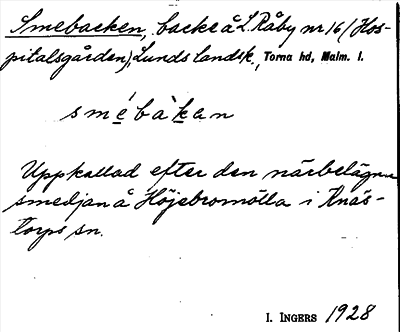 Smebacken, backe å L. Råby nr 16 (Hos-
pitalsgården), Lunds landsk., Torna hd, Malm. l.
smébàkan
Uppkallad efter den närbelägna
smedjan å Höjebromölla i Knäs-
torps sn.
I. INGERS 1928